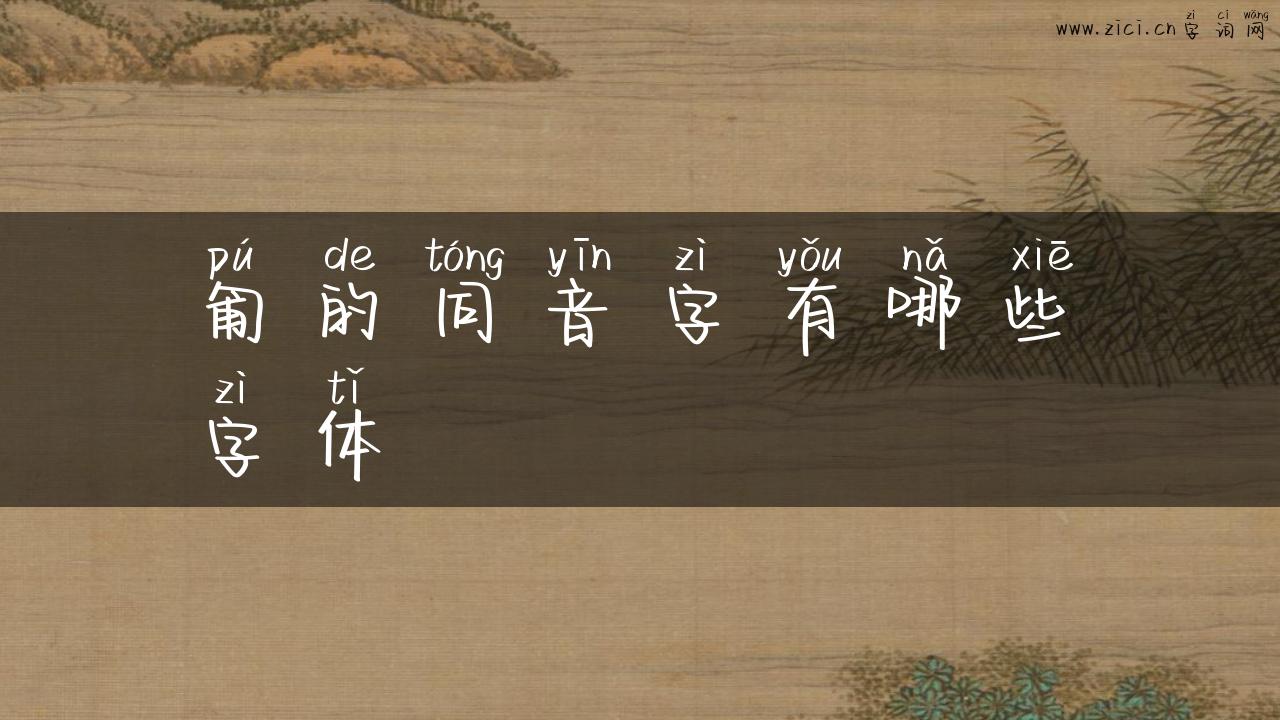 zì cí wǎng
www.zici.cn字词网
pú de tóng yīn zì yǒu nǎ xiē
匍的同音字有哪些
zì tǐ
字体